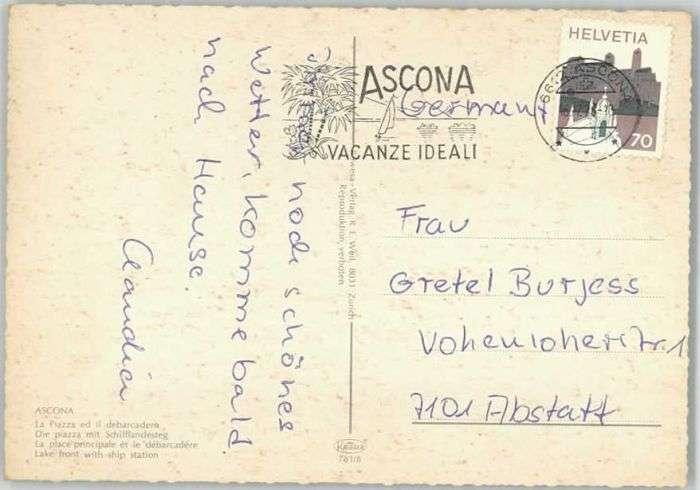 noch schönes
Wetter, komme bald
nach Hause.
Claudia
ASCONA
La Piazza ed il debarcadero
Die piazza mit Schifflandesteg
La place principale et le débarcadère
Lake front with ship station
Verlag R. E. Weil, 8031 Zürich
Reproduktion verboten
Krüger
761/8
ASCONA
VACANZE IDEALI
HELVETIA
70
6612 ASCONA
Germany
Frau
Gretel Burjess
Hohenloherstr. 1
7101 Abstatt